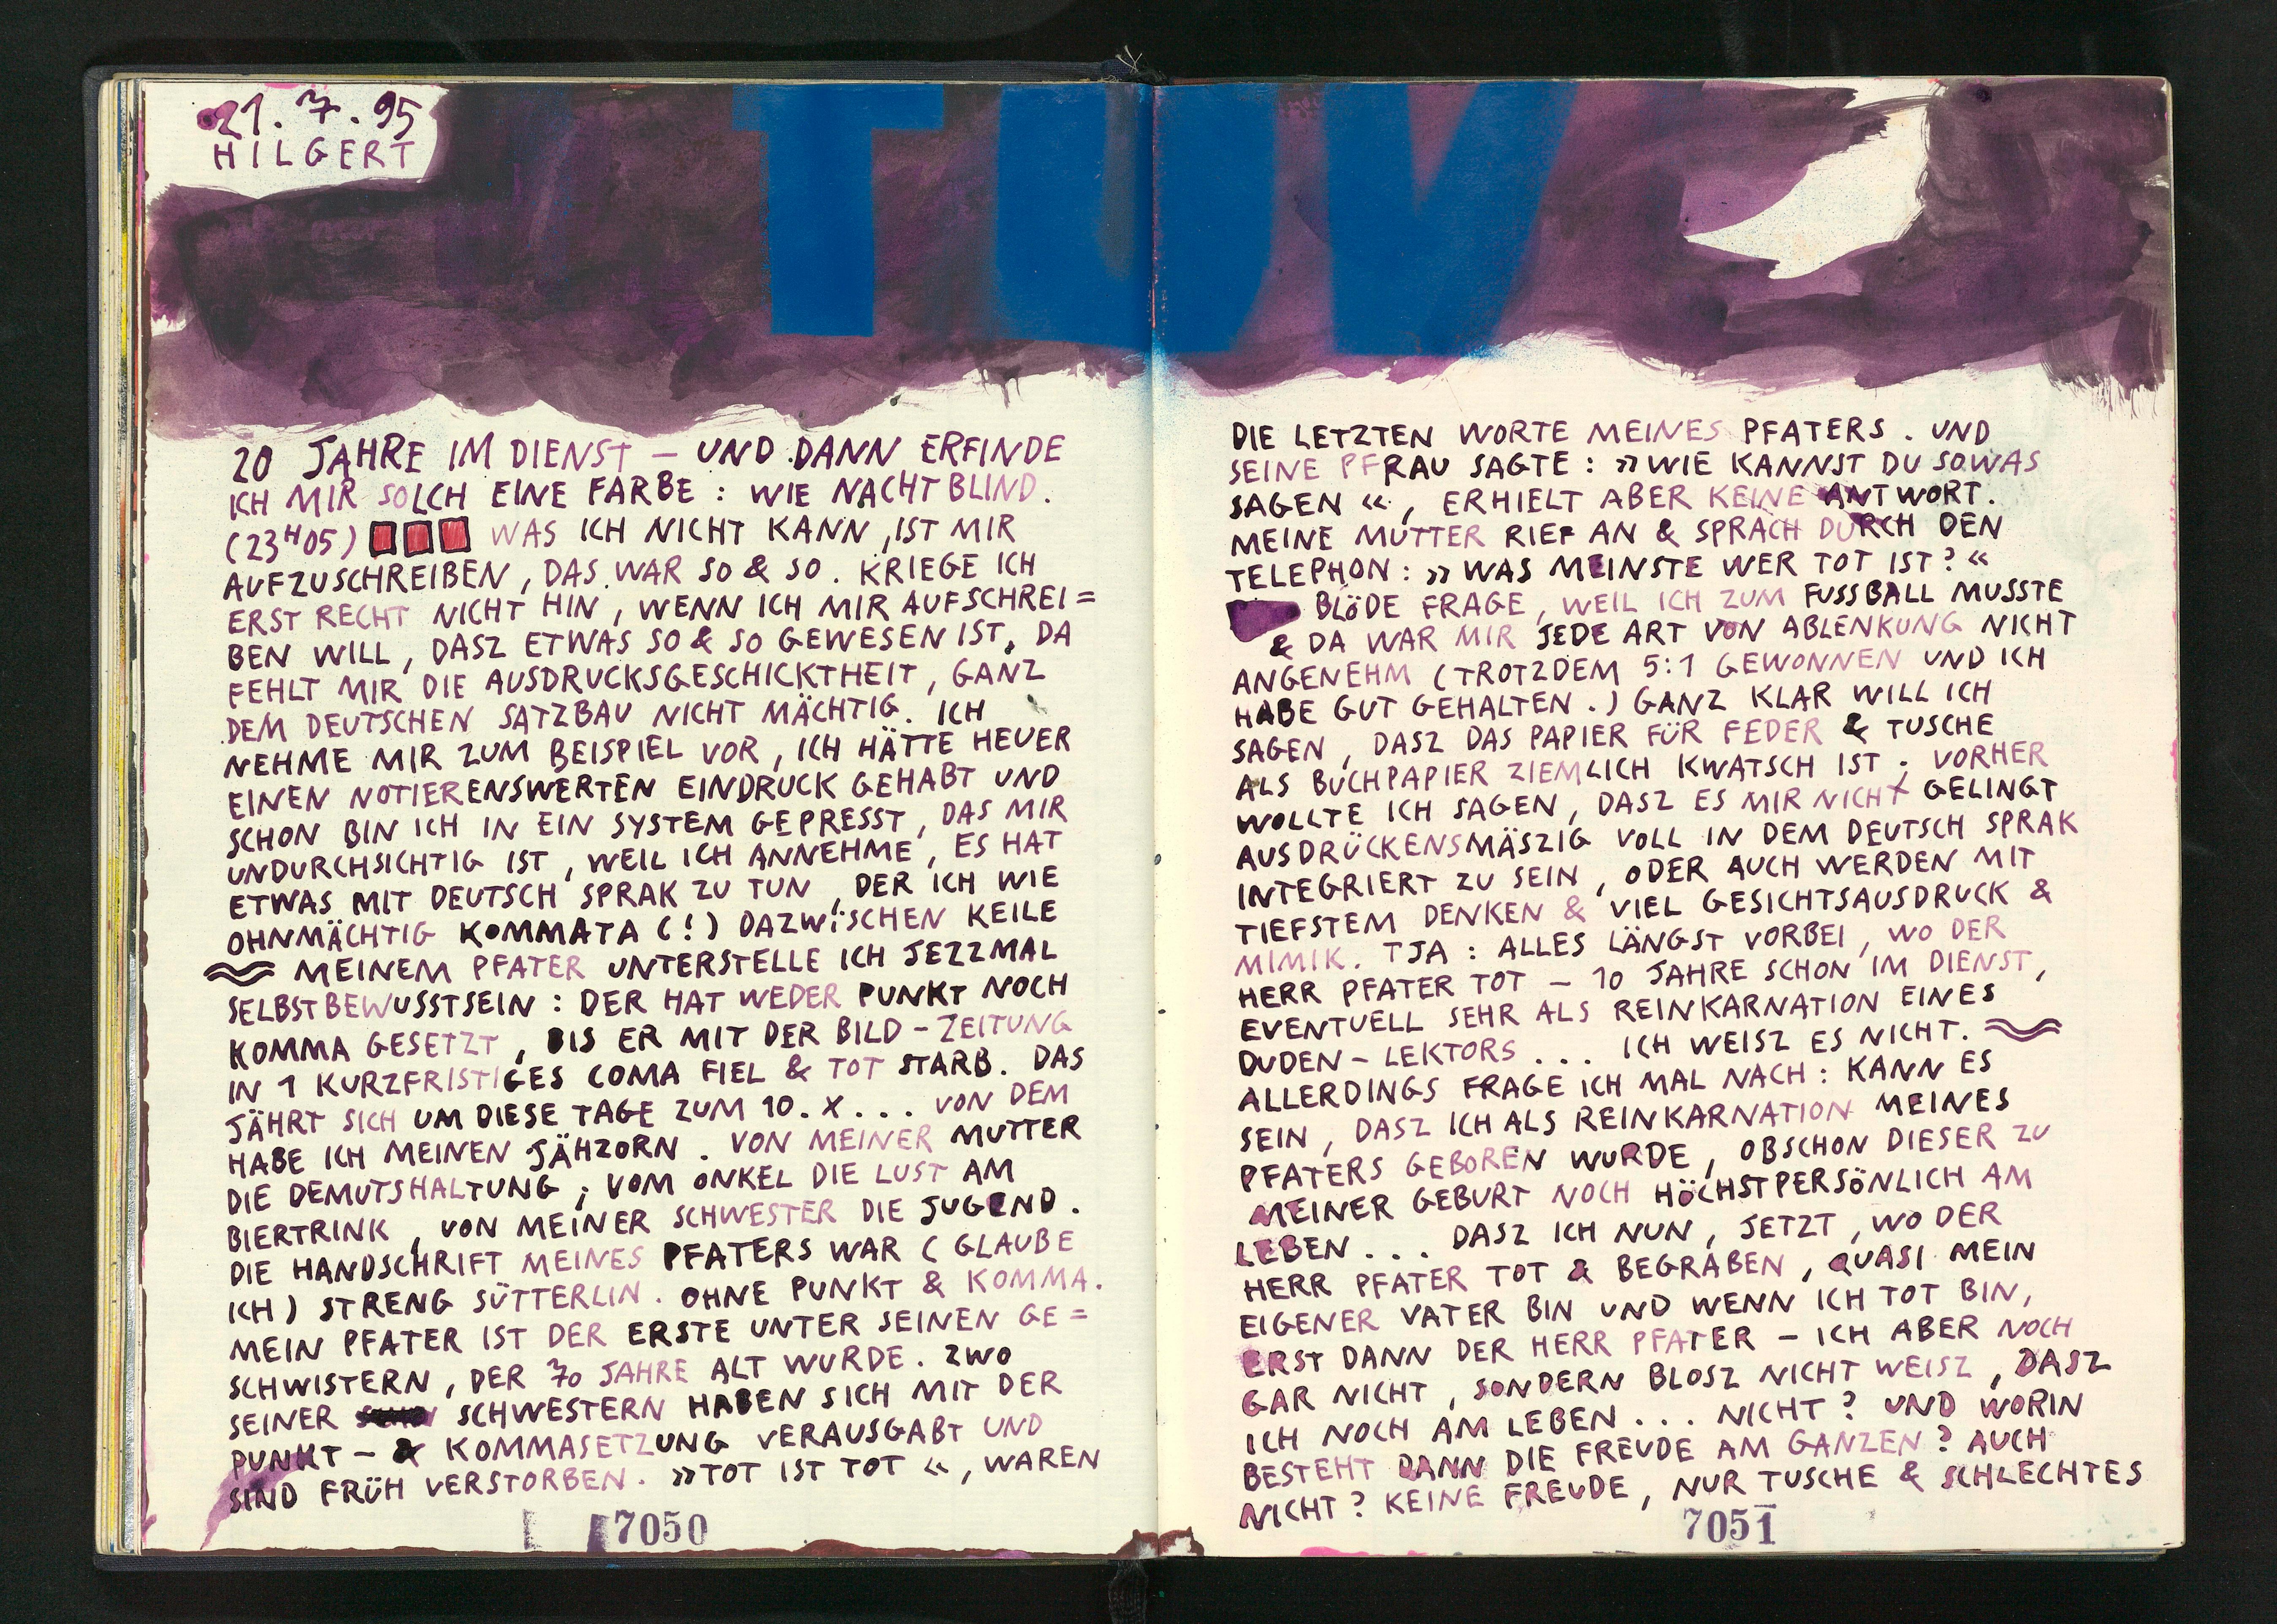 21.7.95
HILGERT
TUV
20 JAHRE IM DIENST — UND DANN ERFINDE
ICH MIR SOLCH EINE FARBE : WIE NACHTBLIND.
(23H05) WAS ICH NICHT KANN, IST MIR
AUFZUSCHREIBEN, DAS WAR SO & SO. KRIEGE ICH
ERST RECHT NICHT HIN, WENN ICH MIR AUFSCHREI=
BEN WILL, DASZ ETWAS SO & SO GEWESEN IST, DA
FEHLT MIR DIE AUSDRUCKSGESCHICKTHEIT, GANZ
DEM DEUTSCHEN SATZBAU NICHT MÄCHTIG. ICH
NEHME MIR ZUM BEISPIEL VOR, ICH HÄTTE HEUER
EINEN NOTIERENSWERTEN EINDRUCK GEHABT UND
SCHON BIN ICH IN EIN SYSTEM GEPRESST, DAS MIR
UNDURCHSICHTIG IST, WEIL ICH ANNEHME, ES HAT
ETWAS MIT DEUTSCH SPRAK ZU TUN, DER ICH WIE
OHNMÄCHTIG KOMMATA (!) DAZWISCHEN KEILE
MEINEM PFATER UNTERSTELLE ICH JEZZMAL
SELBSTBEWUSSTSEIN : DER HAT WEDER PUNKT NOCH
KOMMA GESETZT, BIS ER MIT DER BILD-ZEITUNG
IN 1 KURZFRISTIGES COMA FIEL & TOT STARB. DAS
JÄHRT SICH UM DIESE TAGE ZUM 10. X... VON DEM
HABE ICH MEINEN JÄHZORN. VON MEINER MUTTER
DIE DEMUTSHALTUNG; VOM ONKEL DIE LUST AM
BIERTRINK, VON MEINER SCHWESTER DIE JUGEND.
DIE HANDSCHRIFT MEINES PFATERS WAR (GLAUBE
ICH) STRENG SÜTTERLIN. OHNE PUNKT & KOMMA.
MEIN PFATER IST DER ERSTE UNTER SEINEN GE=
SCHWISTERN, DER 70 JAHRE ALT WURDE. ZWO
SEINER SCHWESTERN HABEN SICH MIT DER
PUNKT- & KOMMASETZUNG VERAUSGABT UND
SIND FRÜH VERSTORBEN. »TOT IST TOT«, WAREN
7050
DIE LETZTEN WORTE MEINES PFATERS. UND
SEINE PFRAU SAGTE : »WIE KANNST DU SOWAS
SAGEN«, ERHIELT ABER KEINE ANTWORT.
MEINE MUTTER RIEF AN & SPRACH DURCH DEN
TELEPHON : »WAS MEINSTE WER TOT IST?«
BLÖDE FRAGE, WEIL ICH ZUM FUSSBALL MUSSTE
& DA WAR MIR JEDE ART VON ABLENKUNG NICHT
ANGENEHM (TROTZDEM 5:1 GEWONNEN UND ICH
HABE GUT GEHALTEN.) GANZ KLAR WILL ICH
SAGEN, DASZ DAS PAPIER FÜR FEDER & TUSCHE
ALS BUCHPAPIER ZIEMLICH KWATSCH IST; VORHER
WOLLTE ICH SAGEN, DASZ ES MIR NICHT GELINGT
AUSDRÜCKENSMÄSZIG VOLL IN DEM DEUTSCH SPRAK
INTEGRIERT ZU SEIN, ODER AUCH WERDEN MIT
TIEFSTEM DENKEN & VIEL GESICHTSAUSDRUCK &
MIMIK. TJA : ALLES LÄNGST VORBEI, WO DER
HERR PFATER TOT — 10 JAHRE SCHON IM DIENST,
EVENTUELL SEHR ALS REINKARNATION EINES
DUDEN-LEKTORS... ICH WEISZ ES NICHT.
ALLERDINGS FRAGE ICH MAL NACH : KANN ES
SEIN, DASZ ICH ALS REINKARNATION MEINES
PFATERS GEBOREN WURDE, OBSCHON DIESER ZU
MEINER GEBURT NOCH HÖCHSTPERSÖNLICH AM
LEBEN... DASZ ICH NUN, JETZT, WO DER
HERR PFATER TOT & BEGRABEN, QUASI MEIN
EIGENER VATER BIN UND WENN ICH TOT BIN,
ERST DANN DER HERR PFATER — ICH ABER NOCH
GAR NICHT, SONDERN BLOSZ NICHT WEISZ, DASZ
ICH NOCH AM LEBEN... NICHT? UND WORIN
BESTEHT DANN DIE FREUDE AM GANZEN? AUCH
NICHT? KEINE FREUDE, NUR TUSCHE & SCHLECHTES
7051